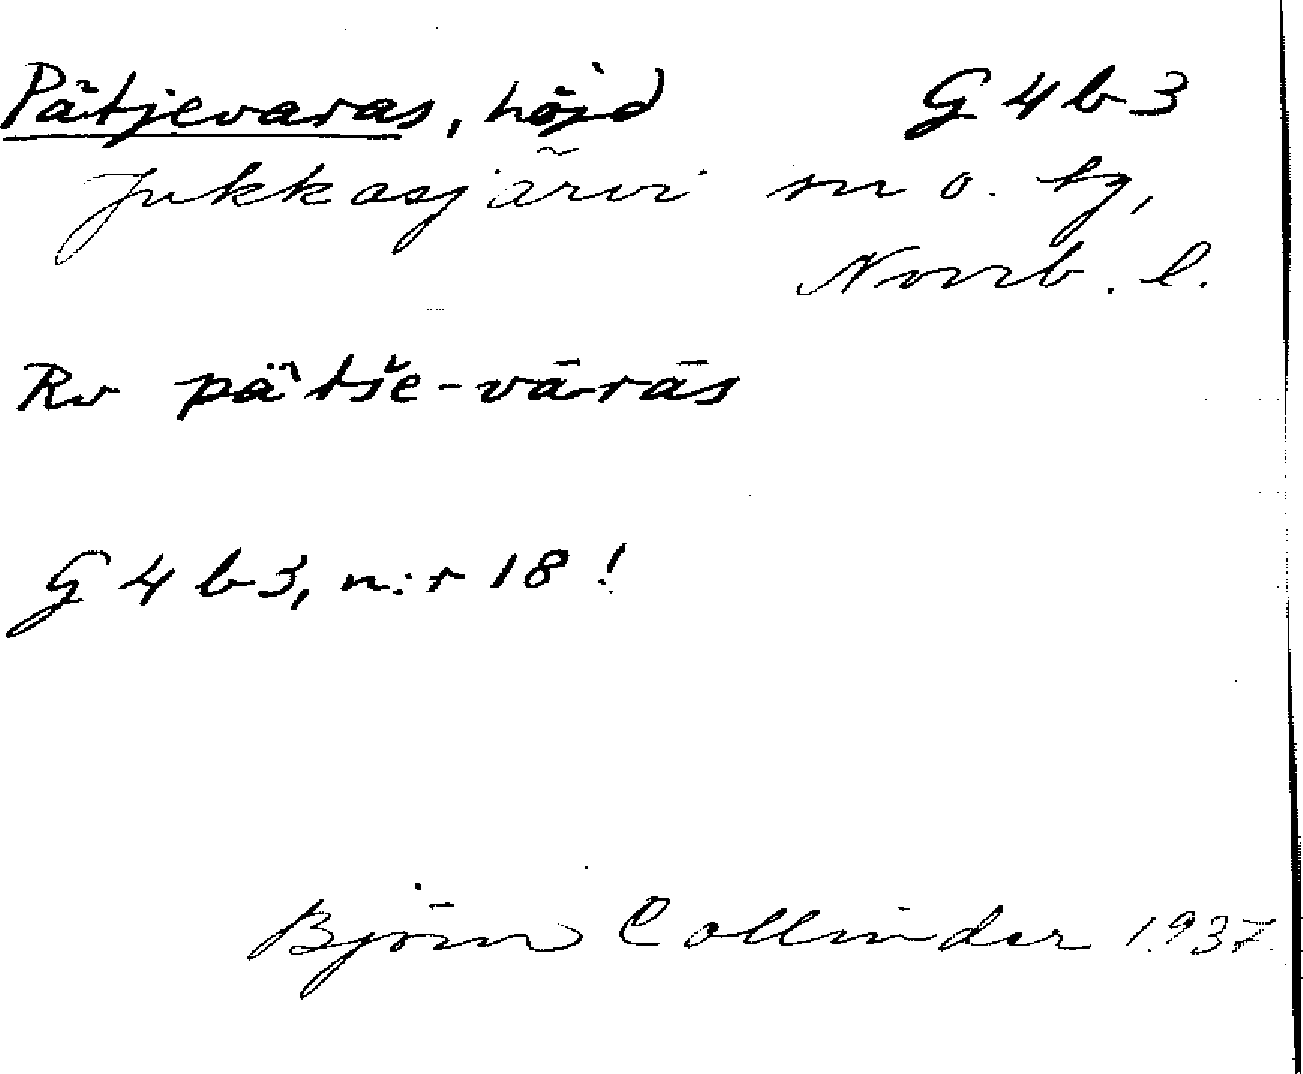 Pätjevaras, höjd G4b3
Jukkasjärvi sn o. tg,
Norrb. l.
Rv pä̀tše-vārās
G4b3, n:r 18!
Björn Collinder 1937.